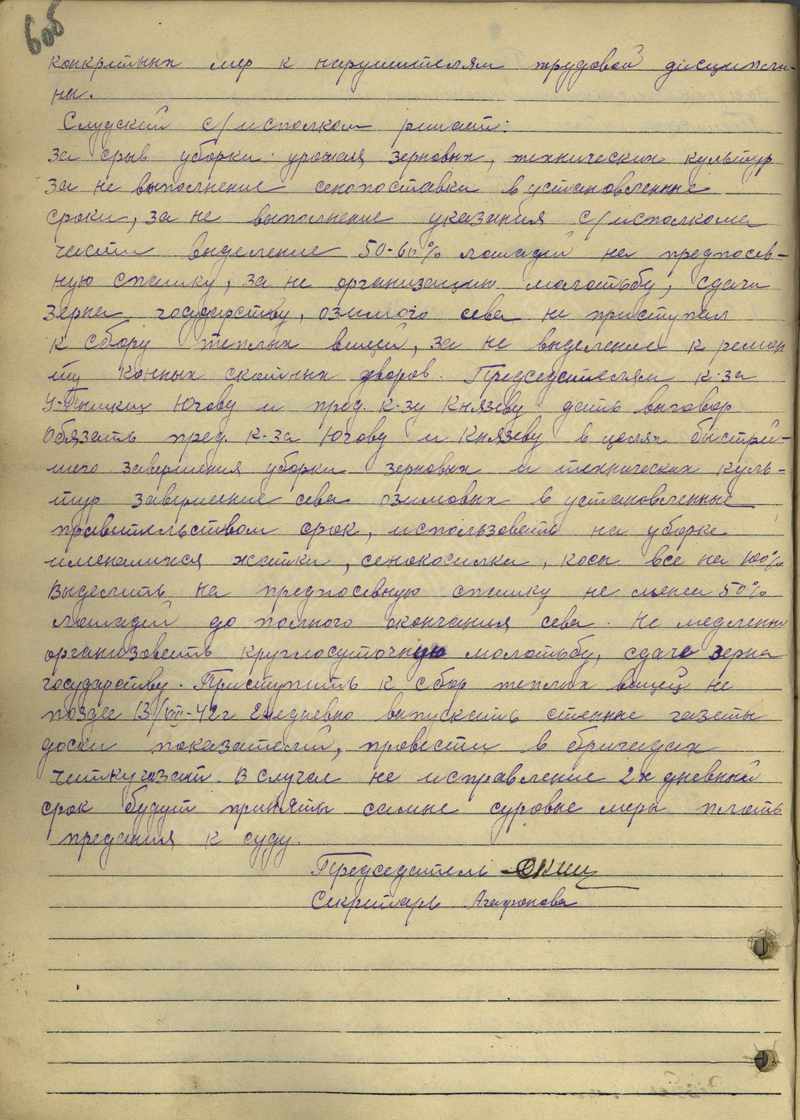 606
конкретных мер к нарушителям трудовой дисципли-
ны.
Слудский с/исполком решает:
за срыв уборки урожая зерновых, технических культур
за не выполнение сенопоставки в установленные
сроки, за не выполнение указания с/исполкома
части выделение 50-60% лошадей на предпосев-
ную спашку, за не организацию молотьбу, сдачи
зерна государству, озимого сева не приступал
к сбору теплых вещей, за не выделение к ремон
ту конных скотных дворов. Председателям к-за
Югову и пред. к-зу Князеву дать выговор
Обязать пред. к-за Югову и Князеву в целях быстрей-
шего завершения уборки зерновых и технических куль-
тур завершение сева озимовых в установленные
правительством срок, использовать на уборке
имеющихся жатки, сенокосилки, косы все на 100%
Выделить на предпосевную спашку не менее 50%
лошадей до полного окончания сева. Не медленно
организовать круглосуточную молотьбу, сдаче зерна
государству. Приступить к сбор теплых вещей не
позде 13/VIII-42г Ежедневно выпускать стенные газеты
доски показателей, провести в бригадах
читку газет. В случае не исправление 2х дневный
срок будут приняты самые суровые меры плоть
предания к суду.
Председатель
Секретарь Агафонова